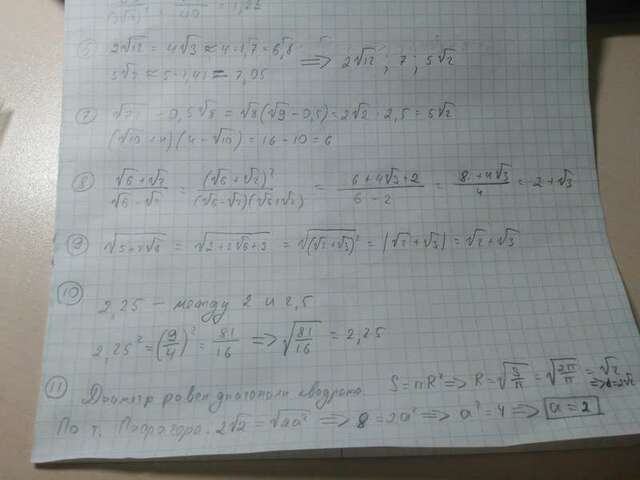 2√12 = 4√3 ≈ 4·1,7 = 6,8
5√2 ≈ 5·1,41 = 7,05 => 2√12 ; 7 ; 5√2
⑦ - 0,5√8 = √8(√9 - 0,5) = 2√2 · 2,5 = 5√2
(√10 + 4)(4 - √10) = 16 - 10 = 6
⑧ (√6 + √2)/(√6 - √2) = (√6 + √2)²/((√6 - √2)(√6 + √2)) = (6 + 4√3 + 2)/(6 - 2) = (8 + 4√3)/4 = 2 + √3
⑨ √(5+2√6) = √(2+2√6+3) = √((√2+√3)²) = |√2+√3| = √2+√3
⑩
2,25 – между 2 и 2,5
2,25² = (9/4)² = 81/16 => √(81/16) = 2,25
⑪ Диаметр равен диагонали квадрата. S = πR² => R = √(S/π) = √(2π/π) = √2
=> d = 2√2
По т. Пифагора: 2√2 = √(2a²) => 8 = 2a² => a² = 4 => a = 2